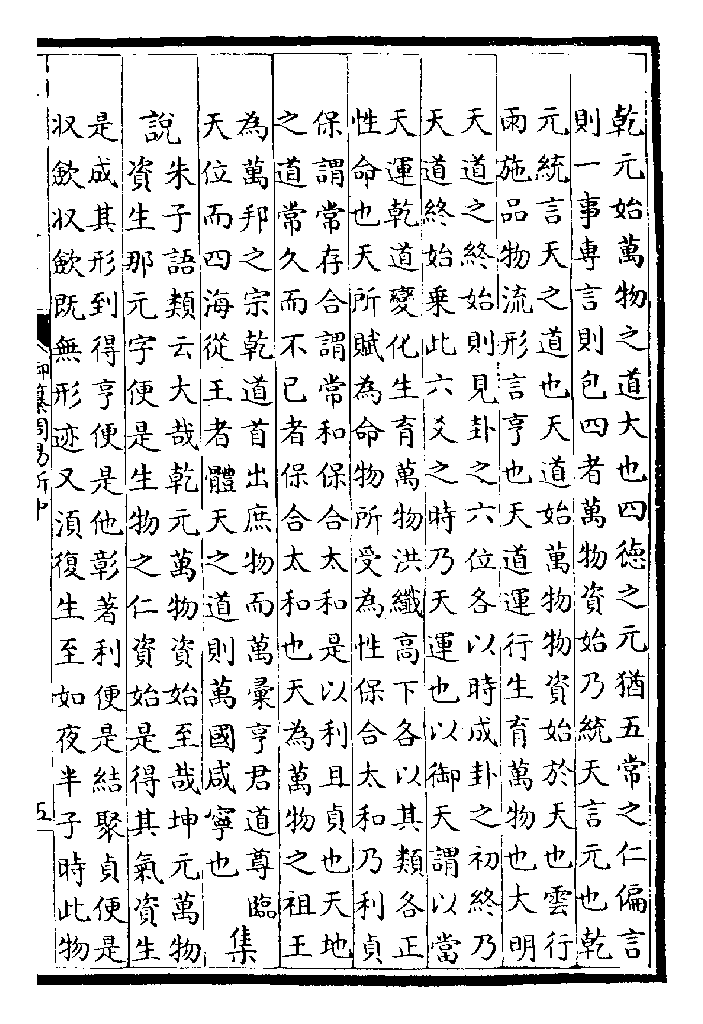 乾元始萬物之道大也四德之元猶五常之仁偏言
則一事專言則包四者萬物資始乃統天言元也乾
元統言天之道也天道始萬物物資始於天也雲行
雨施品物流形言亨也天道運行生育萬物也大明
天道之終始則見卦之六位各以時成卦之初終乃
天道終始乘此六爻之時乃天運也以御天謂以當
天運乾道變化生育萬物洪纖高下各以其類各正
性命也天所賦為命物所受為性保合太和乃利貞
保謂常存合謂常和保合太和是以利且貞也天地
之道常久而不已者保合太和也天為萬物之祖王
為萬邦之宗乾道首出庶物而萬彙亨君道尊臨
天位而四海從王者體天之道則萬國咸寧也
集
說
朱子語類云大哉乾元萬物資始至哉坤元萬物
資生那元字便是生物之仁資始是得其氣資生
是成其形到得亨便是他彰著利便是結聚貞便是
収斂収斂既無形迹又湏復生至如夜半子時此物
御纂周易折中
五